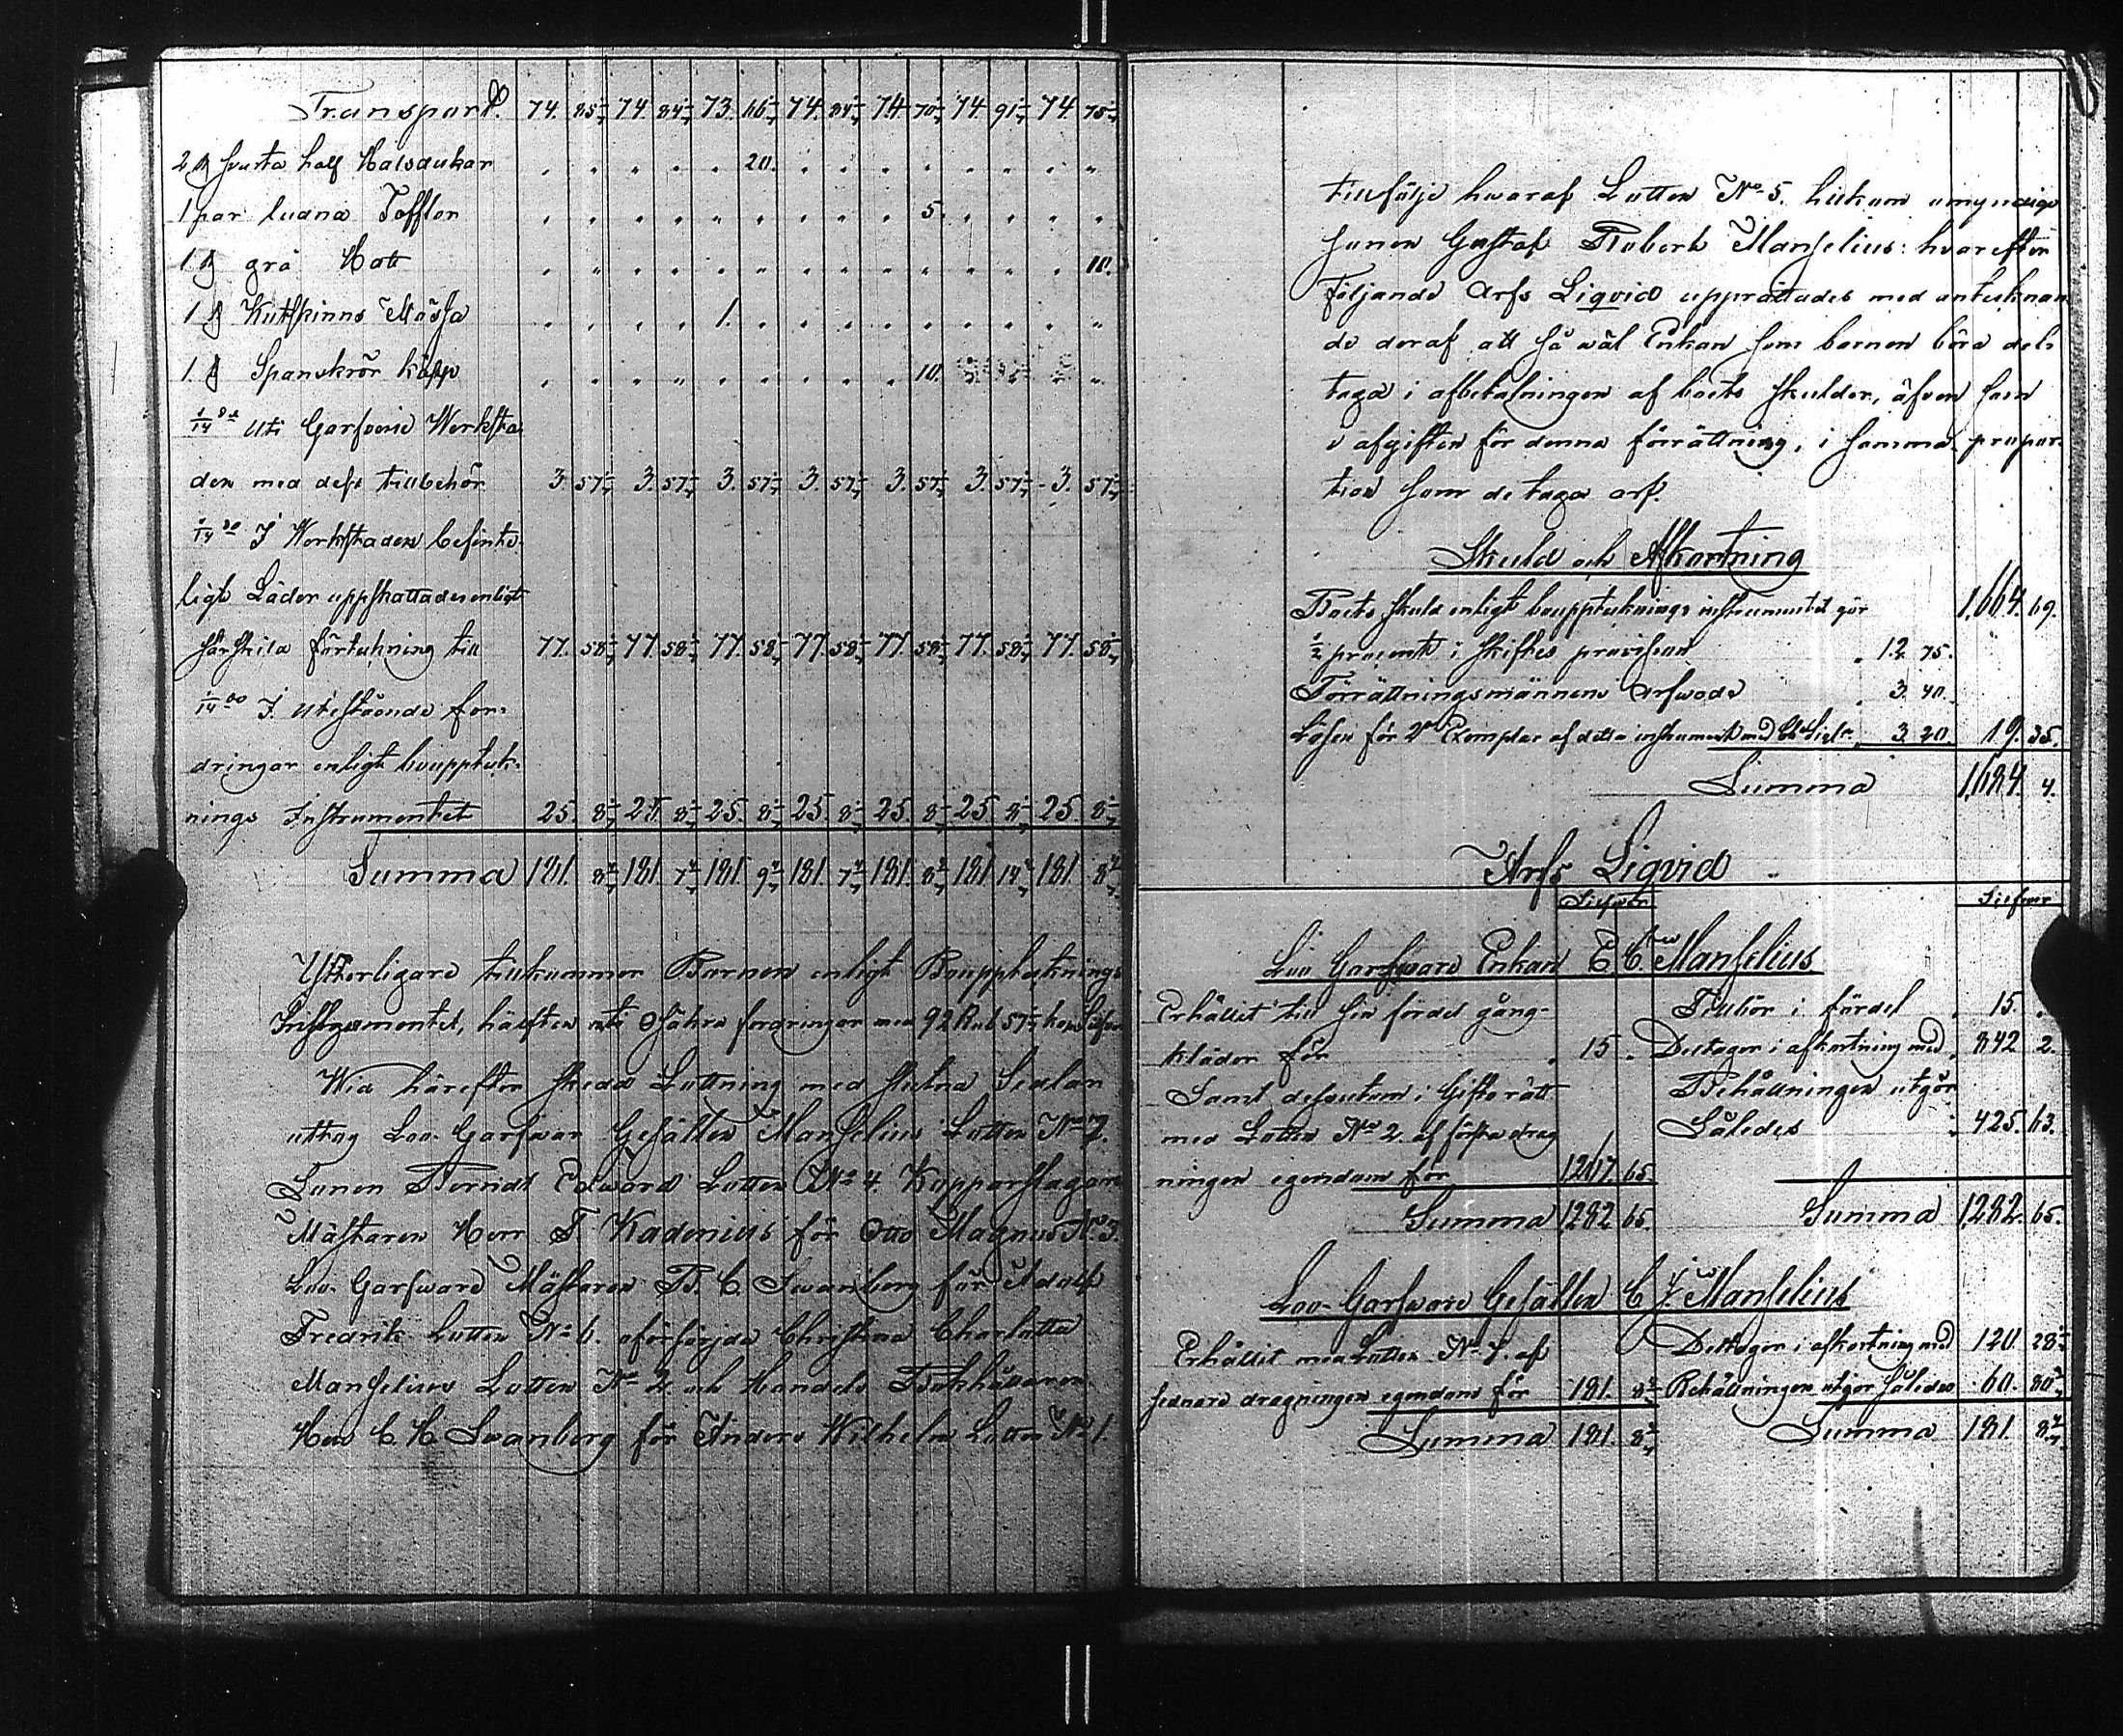 Transport. 74. 85 74. 84 73. 66 74. 84 74. 70 74. 91 74. 75
2 st svarta half Halsdukar " " " " " 20. " " " " " " " "
1 par ludna Tofflor " " " " " " " " " 5. " " " "
1 st grå Hatt " " " " " " " " " " " " " 10.
1 st Kutskinns Mössa " " " " 1. " " " " " " " " "
1 st Spanskrör käpp " " " " " " " " " 10. " "
1/14 de uti Garfveri Werksta
den med dess tillbehör 3. 57 1/7 3. 57 1/7 3. 57 1/7 3. 57 1/7 3. 57 1/7 3. 57 1/7 3. 57 1/7
1/14 de I Werkstaden befinte-
ligt Läder uppskattades enligt
särskild förtekning till 77. 58 77. 58 77. 58 77. 58 77. 58 77. 58 77. 58
1/14 de I. utestående for-
dringar enligt bouppteck-
nings Instrumentet 25. 8 25. 8 25. 8 25. 8 25. 8 25. 8 25. 8
Summa 181. 8 181. 7 181. 9 181. 7 181. 8 181. 14 181. 8
Ytterligare tillkommer Barnen enligt Bouppteknings
Instrumentet, hälften uti osäkra fordringar med 92 Rub 57 1/2 kop Silfver
Wid härefter skedd Lottning med slutna Sedlar
uttog Loo-Garfvar Gesällen Manselius Lotten No 7.
Sonen Berndt Edward Lotten No 4. Kopparslagare
Mästaren Herr F. Kadenius för Otto Magnus No 3.
Loo-Garfvare Mästaren B. C. Swanberg för Adolf
Fredrik Lotten No 6. oförsörjda Christina Charlotta
Manselius Lotten No 2 och Handels Bokhållaren
Herr C. H. Swanberg för Anders Wilhelm Lotten No 1.
tillfölje hwaraf Lotten No 5. tillkom omyndige
sonen Gustaf Robert Manselius: hvarefter
Följande Arfs Liqvid upprättades med anteknan
de deraf att så wäl Enkan som barnen böra del-
taga i afbetalningen af boets skulder, äfven som
i afgiften för denna förrättning, i samma propor-
tion som de taga arf.
Skuld och Afkortning
Boets skuld enligt bouppteknings instrumentet gör 1,664. 69.
1/2 procent i skiftes provision " 12. 75.
Förrättningsmännens arfwode " 3. 40.
Lösen för 2 Exemplar af detta instrument med 3. 20. 19. 35.
Summa 1,684. 4.
Arfs Liqvid
Silfver Silfver
Loo Garfware Enkan E. C. Manselius
Erhållit till sin fördel gång- Tillhör i fördel " 15. "
kläder för " 15 " Deltager i afkortning med " 842 2.
Samt dessutom i Giftorätt Behållningen utgör
med Lotten No 2 af första drag Således " 425. 63.
ningen egendom för 1267. 65
Summa 1282 65. Summa 1,282. 65.
Loo-Garfvare Gesällen C. J. Manselius
Erhållit med Lotten No 7. af Deltager i afkortning med 120. 28
senare dragningen egendom för 181. 8 Behållningen utgör således 60. 80
Summa 181. 8 Summa 181. 8